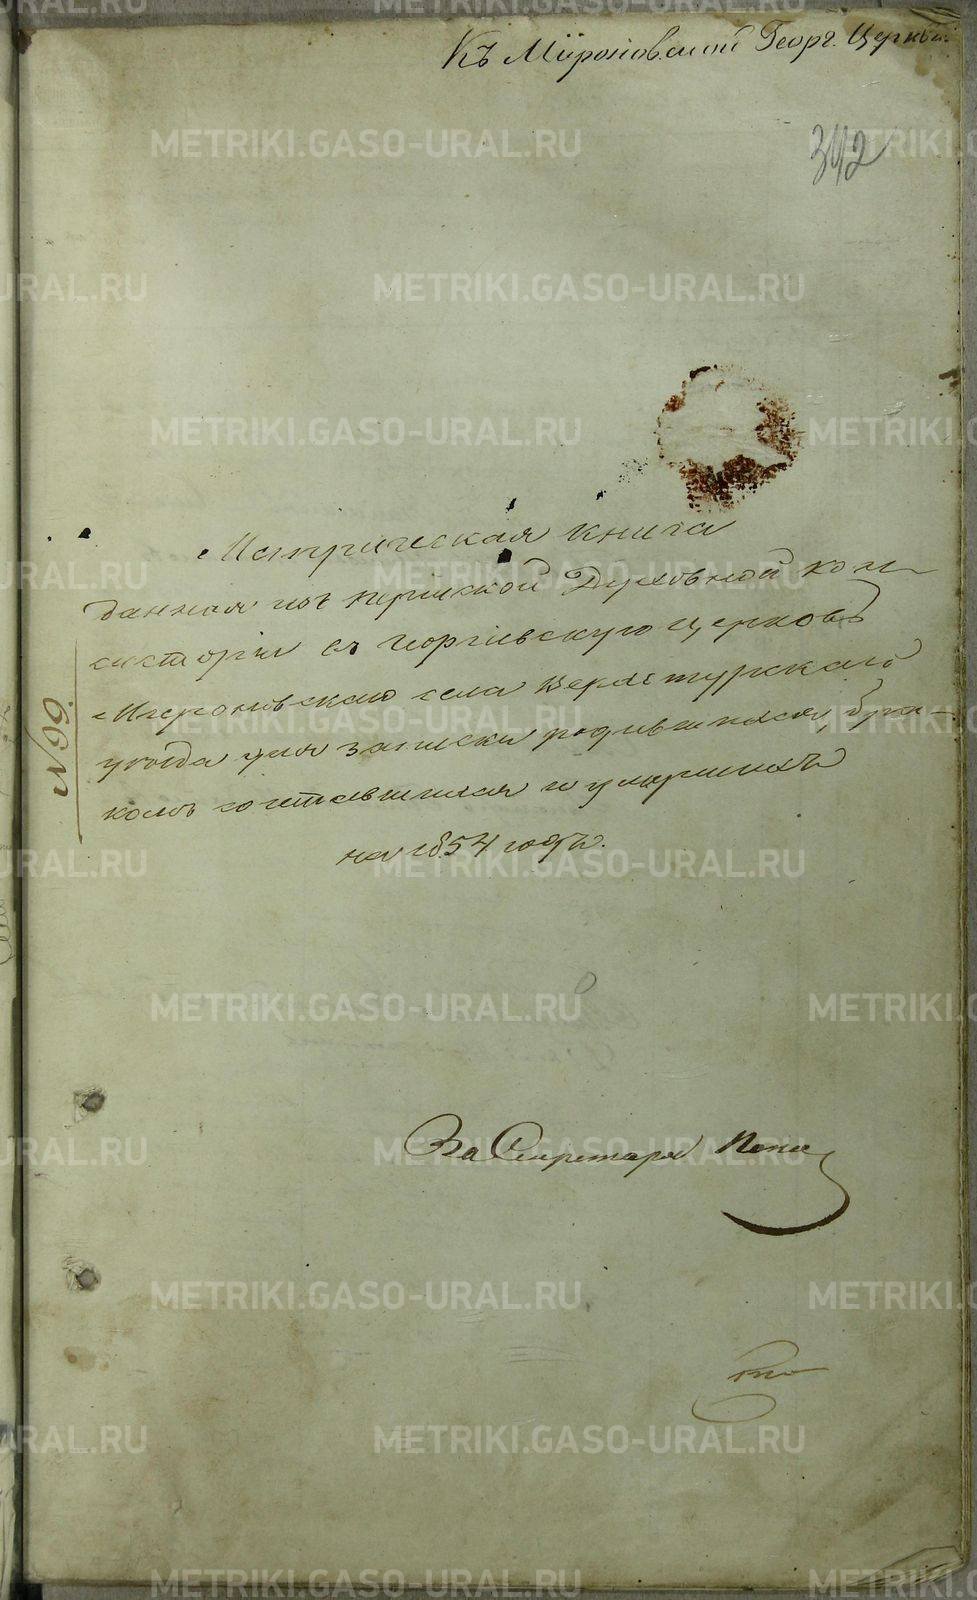 Къ Мироновской Георг. Церкви
342
Метрическая книга
данная изъ Пермской Духовной кон-
систоріи въ Георгіевскую церковь
Мироновскаго села Верхотурскаго
уѣзда для записки родившихся, бра-
комъ сочетавшихся и умершихъ
на 1854 годъ.
N 99.
За Секретаря
METRIKI.GASO-URAL.RU